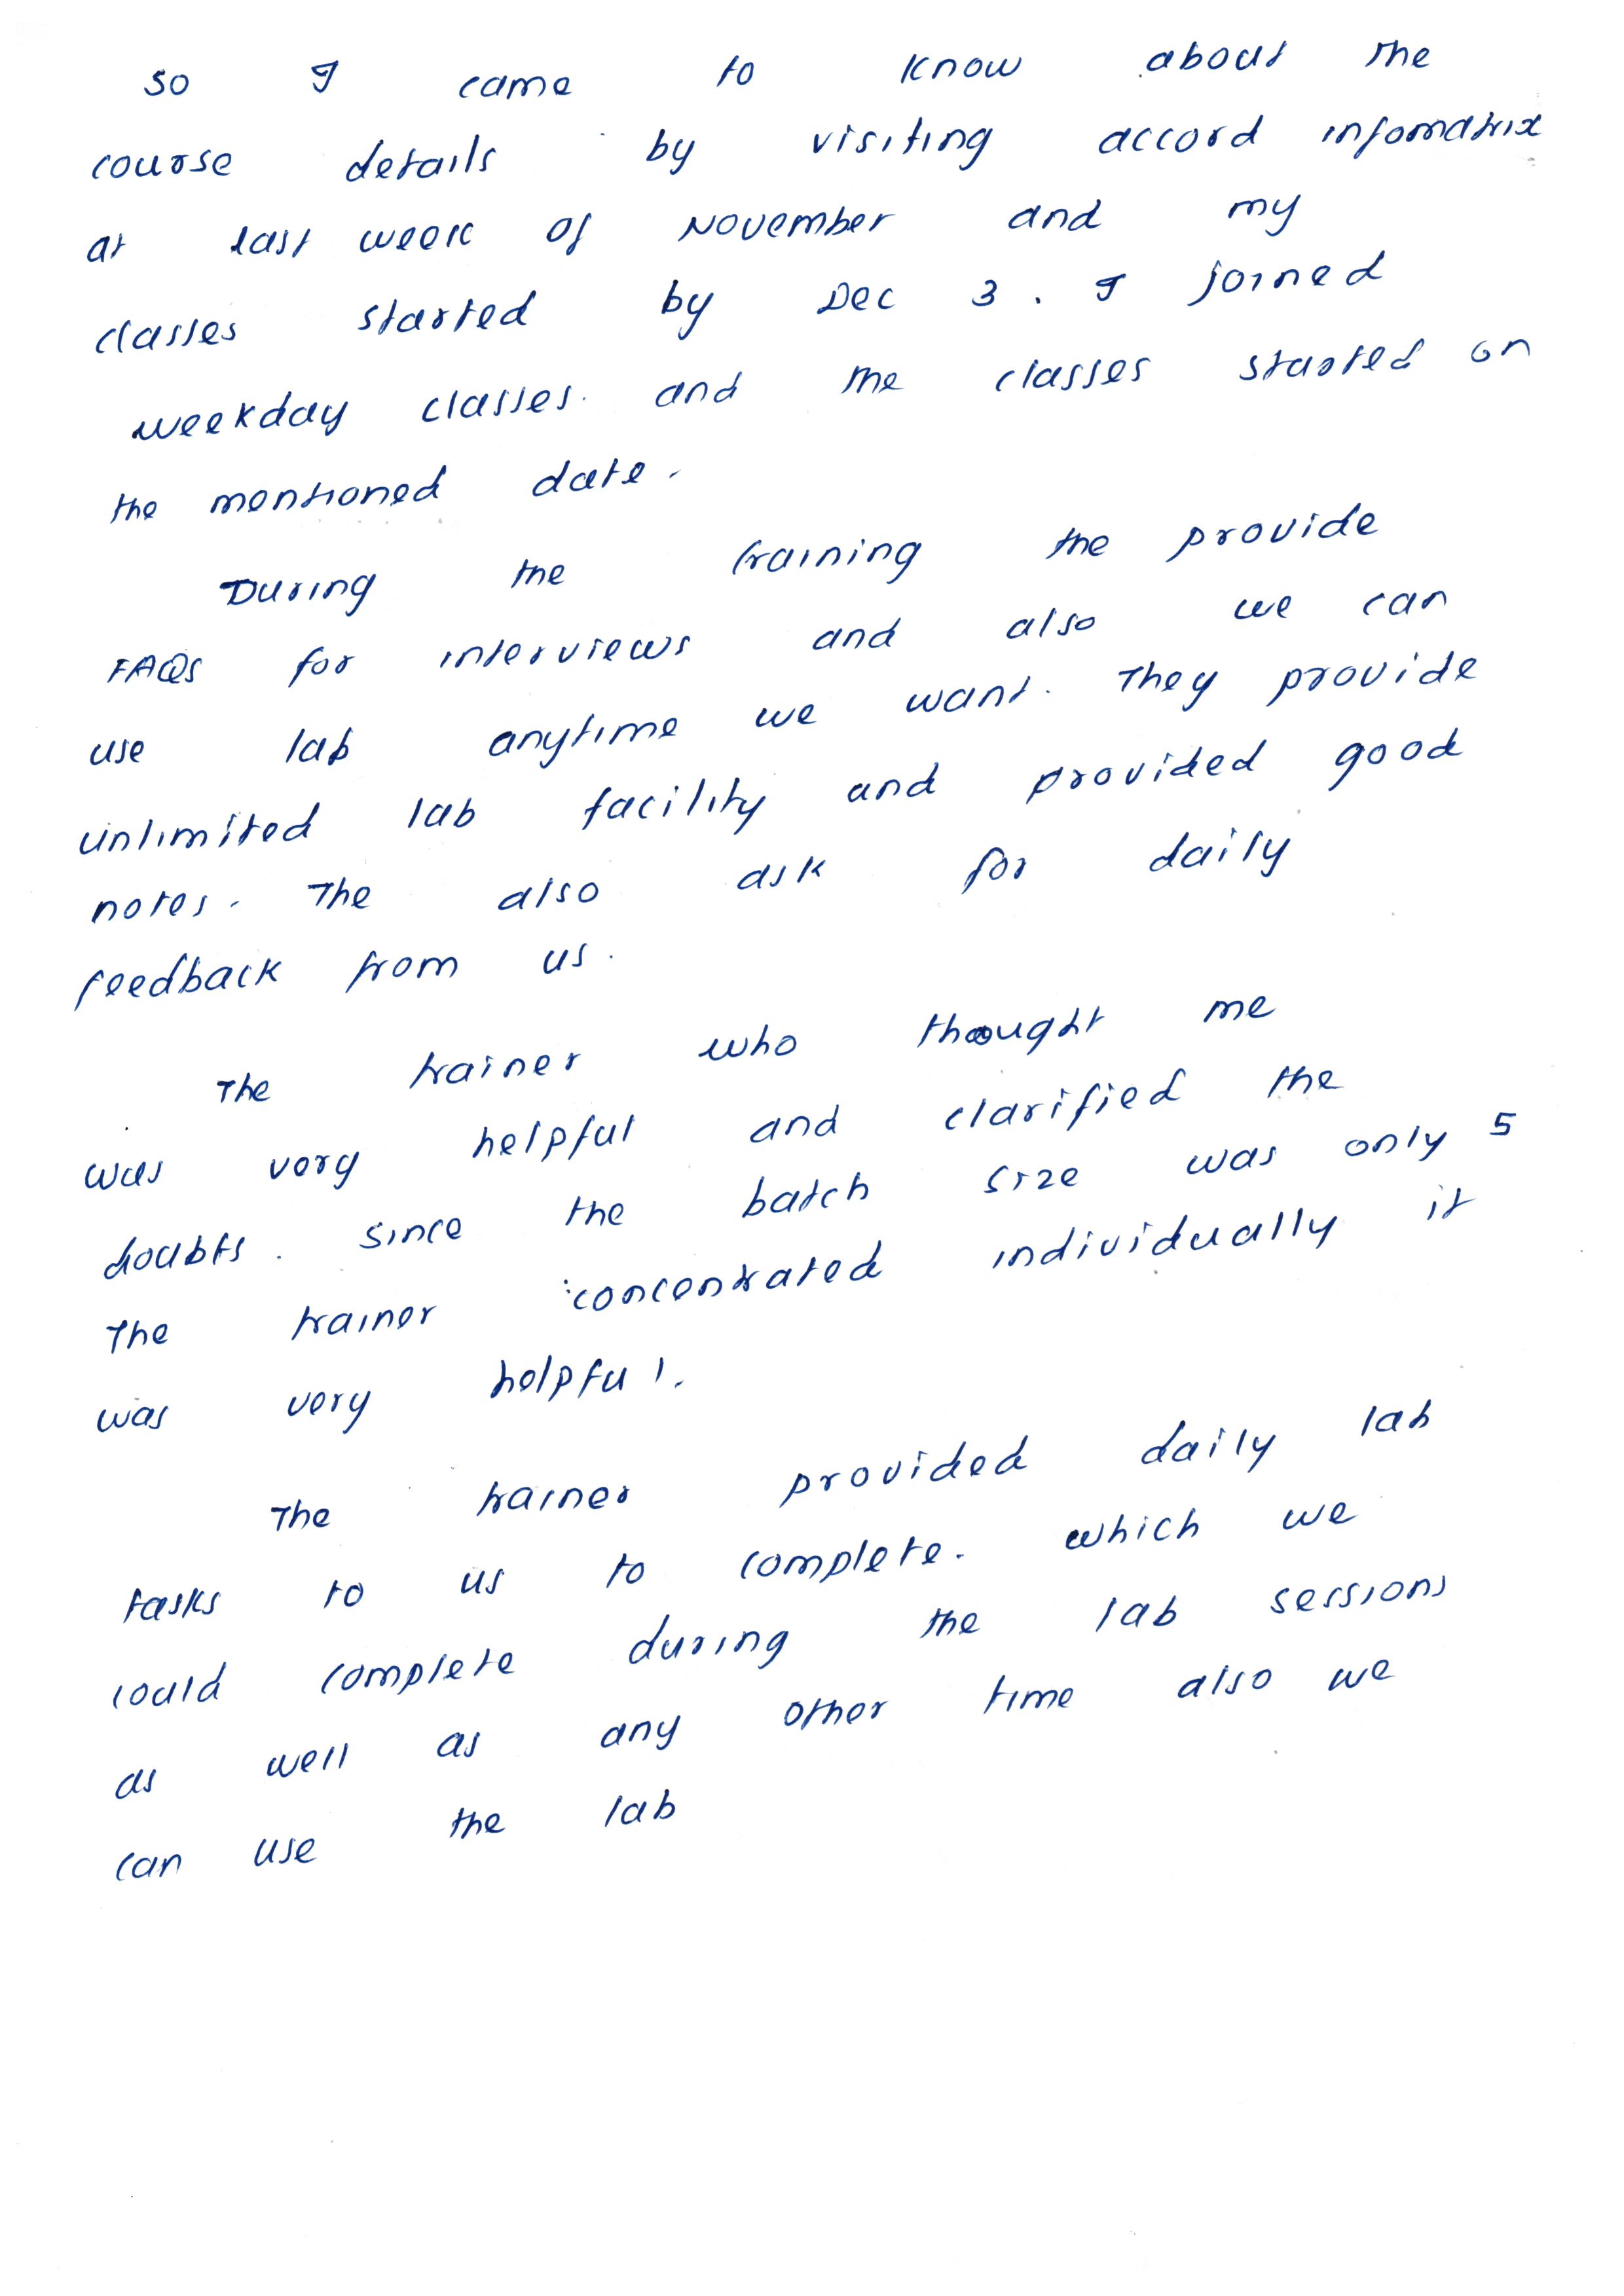 so I came to know about the
course details by visiting accord infomatrix
at last week of November and my
classes started by Dec 3. I joined
weekday classes. and the classes started on
the mentioned date.
During the training the provide
FAQs for interviews and also we can
use lab anytime we want. They provide
unlimited lab facility and provided good
notes. The also ask for daily
feedback from us.
The trainer who thought me
was very helpful and clarified the
doubts. since the batch size was only 5
The trainer concentrated individually it
was very helpful.
The trainer provided daily lab
tasks to us to complete. which we
could complete during the lab sessions
as well as any other time also we
can use the lab